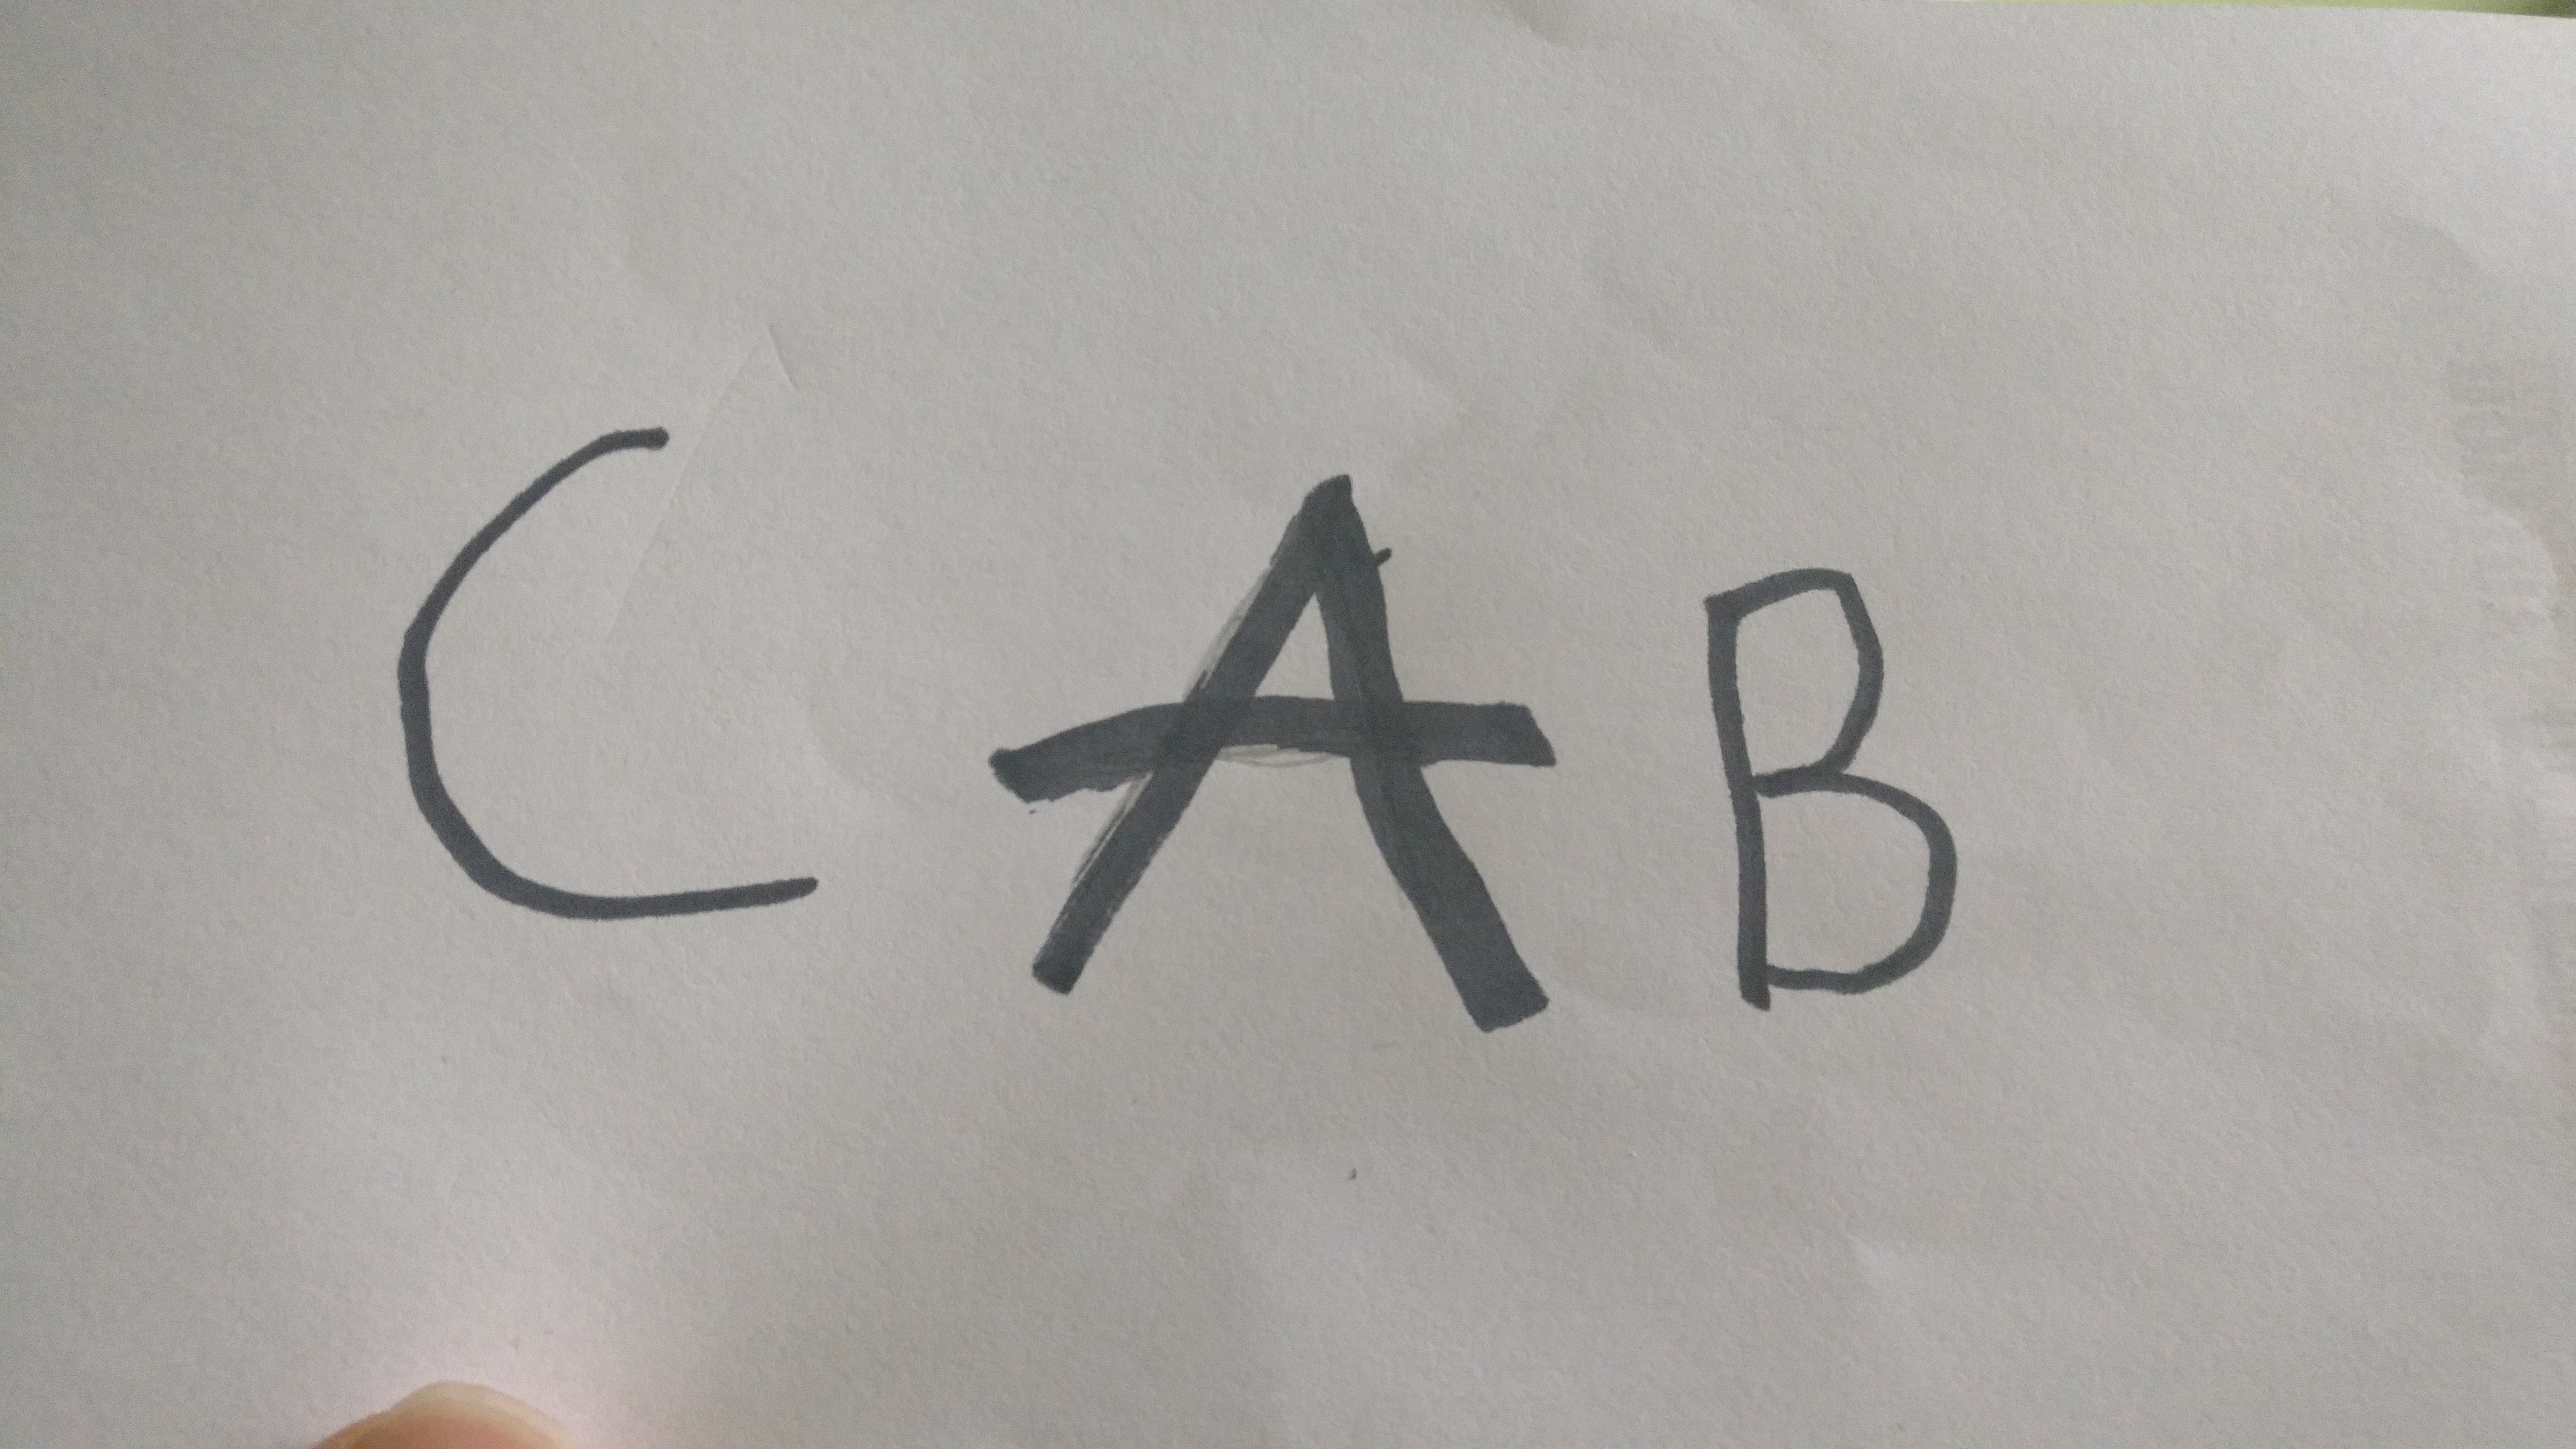 C A B